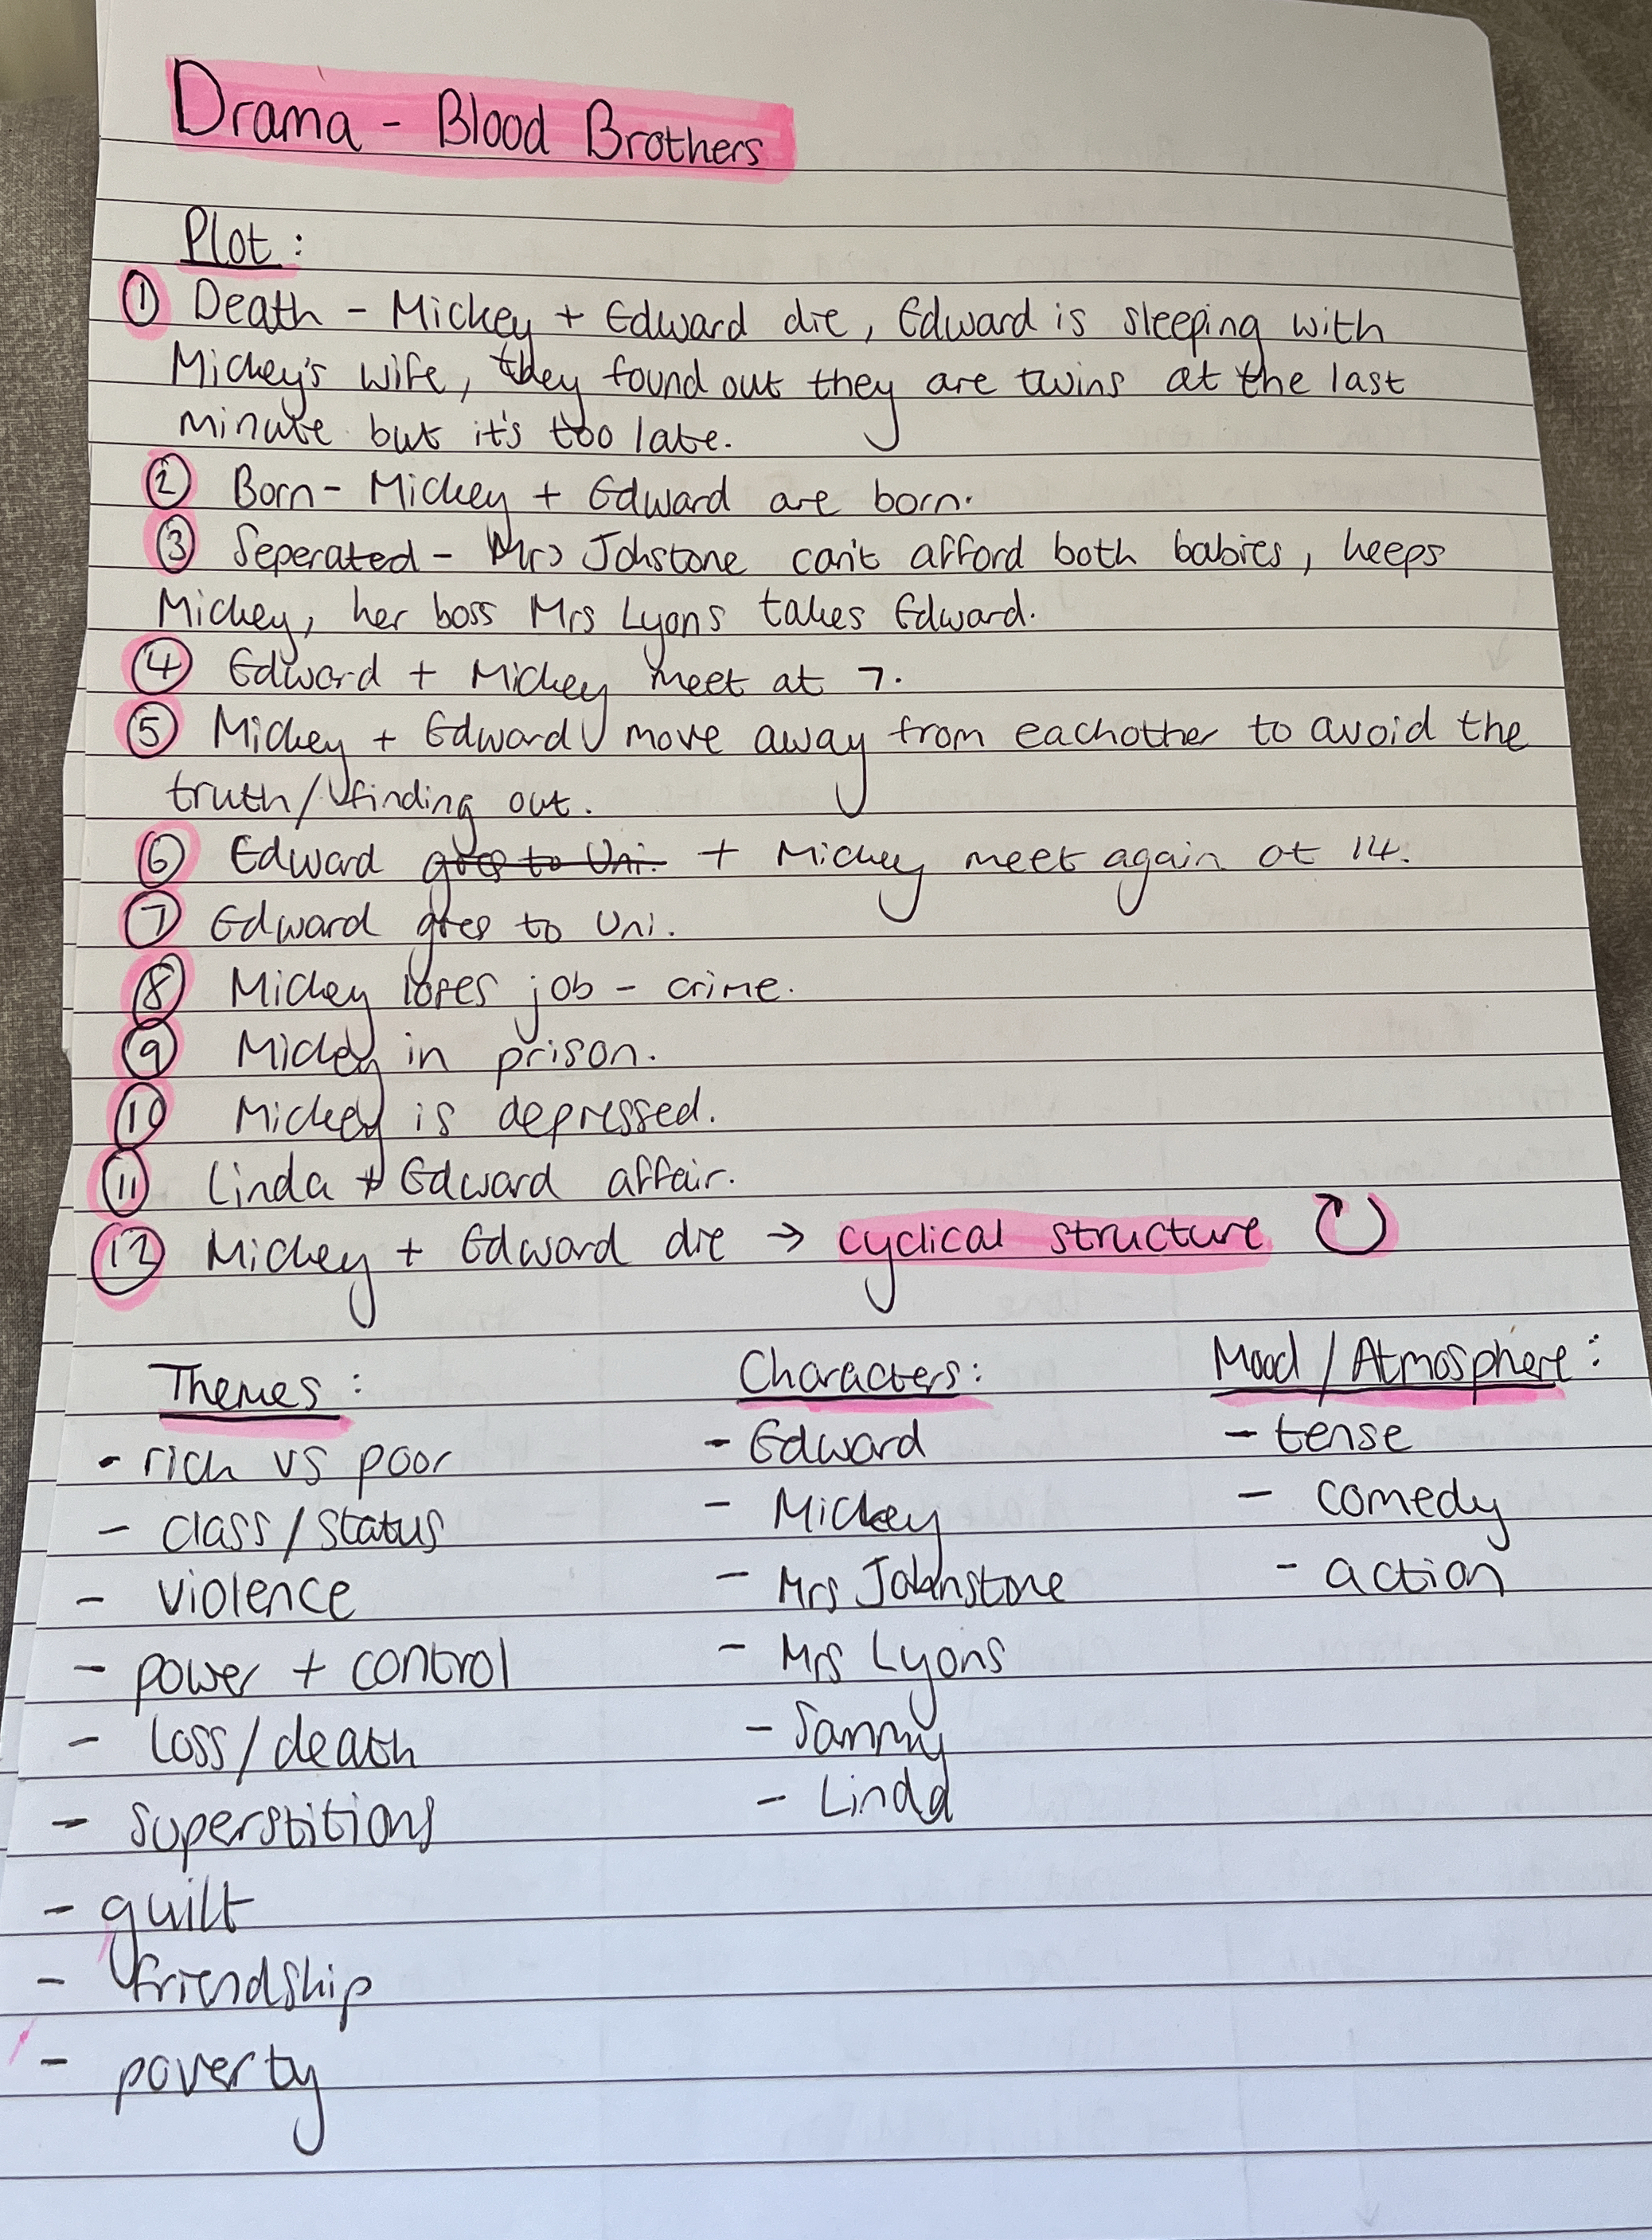 Drama - Blood Brothers
Plot :
① Death - Mickey + Edward die, Edward is sleeping with
Mickey's wife, they found out they are twins at the last
minute but it's too late.
② Born - Mickey + Edward are born.
③ Seperated - Mrs Johstone can't afford both babies, keeps
Mickey, her boss Mrs Lyons takes Edward.
④ Edward + Mickey meet at 7.
⑤ Mickey + Edward move away from eachother to avoid the
truth/finding out.
⑥ Edward goes to Uni. + Mickey meet again at 14.
⑦ Edward goes to Uni.
⑧ Mickey loses job - crime.
⑨ Mickey in prison.
⑩ Mickey is depressed.
⑪ Linda + Edward affair.
⑫ Mickey + Edward die → cyclical structure ↻
Themes :
- rich vs poor
- class/status
- violence
- power + control
- loss/death
- superstitions
- guilt
- friendship
- poverty
Characters :
- Edward
- Mickey
- Mrs Johnstone
- Mrs Lyons
- Sammy
- Linda
Mood / Atmosphere :
- tense
- comedy
- action